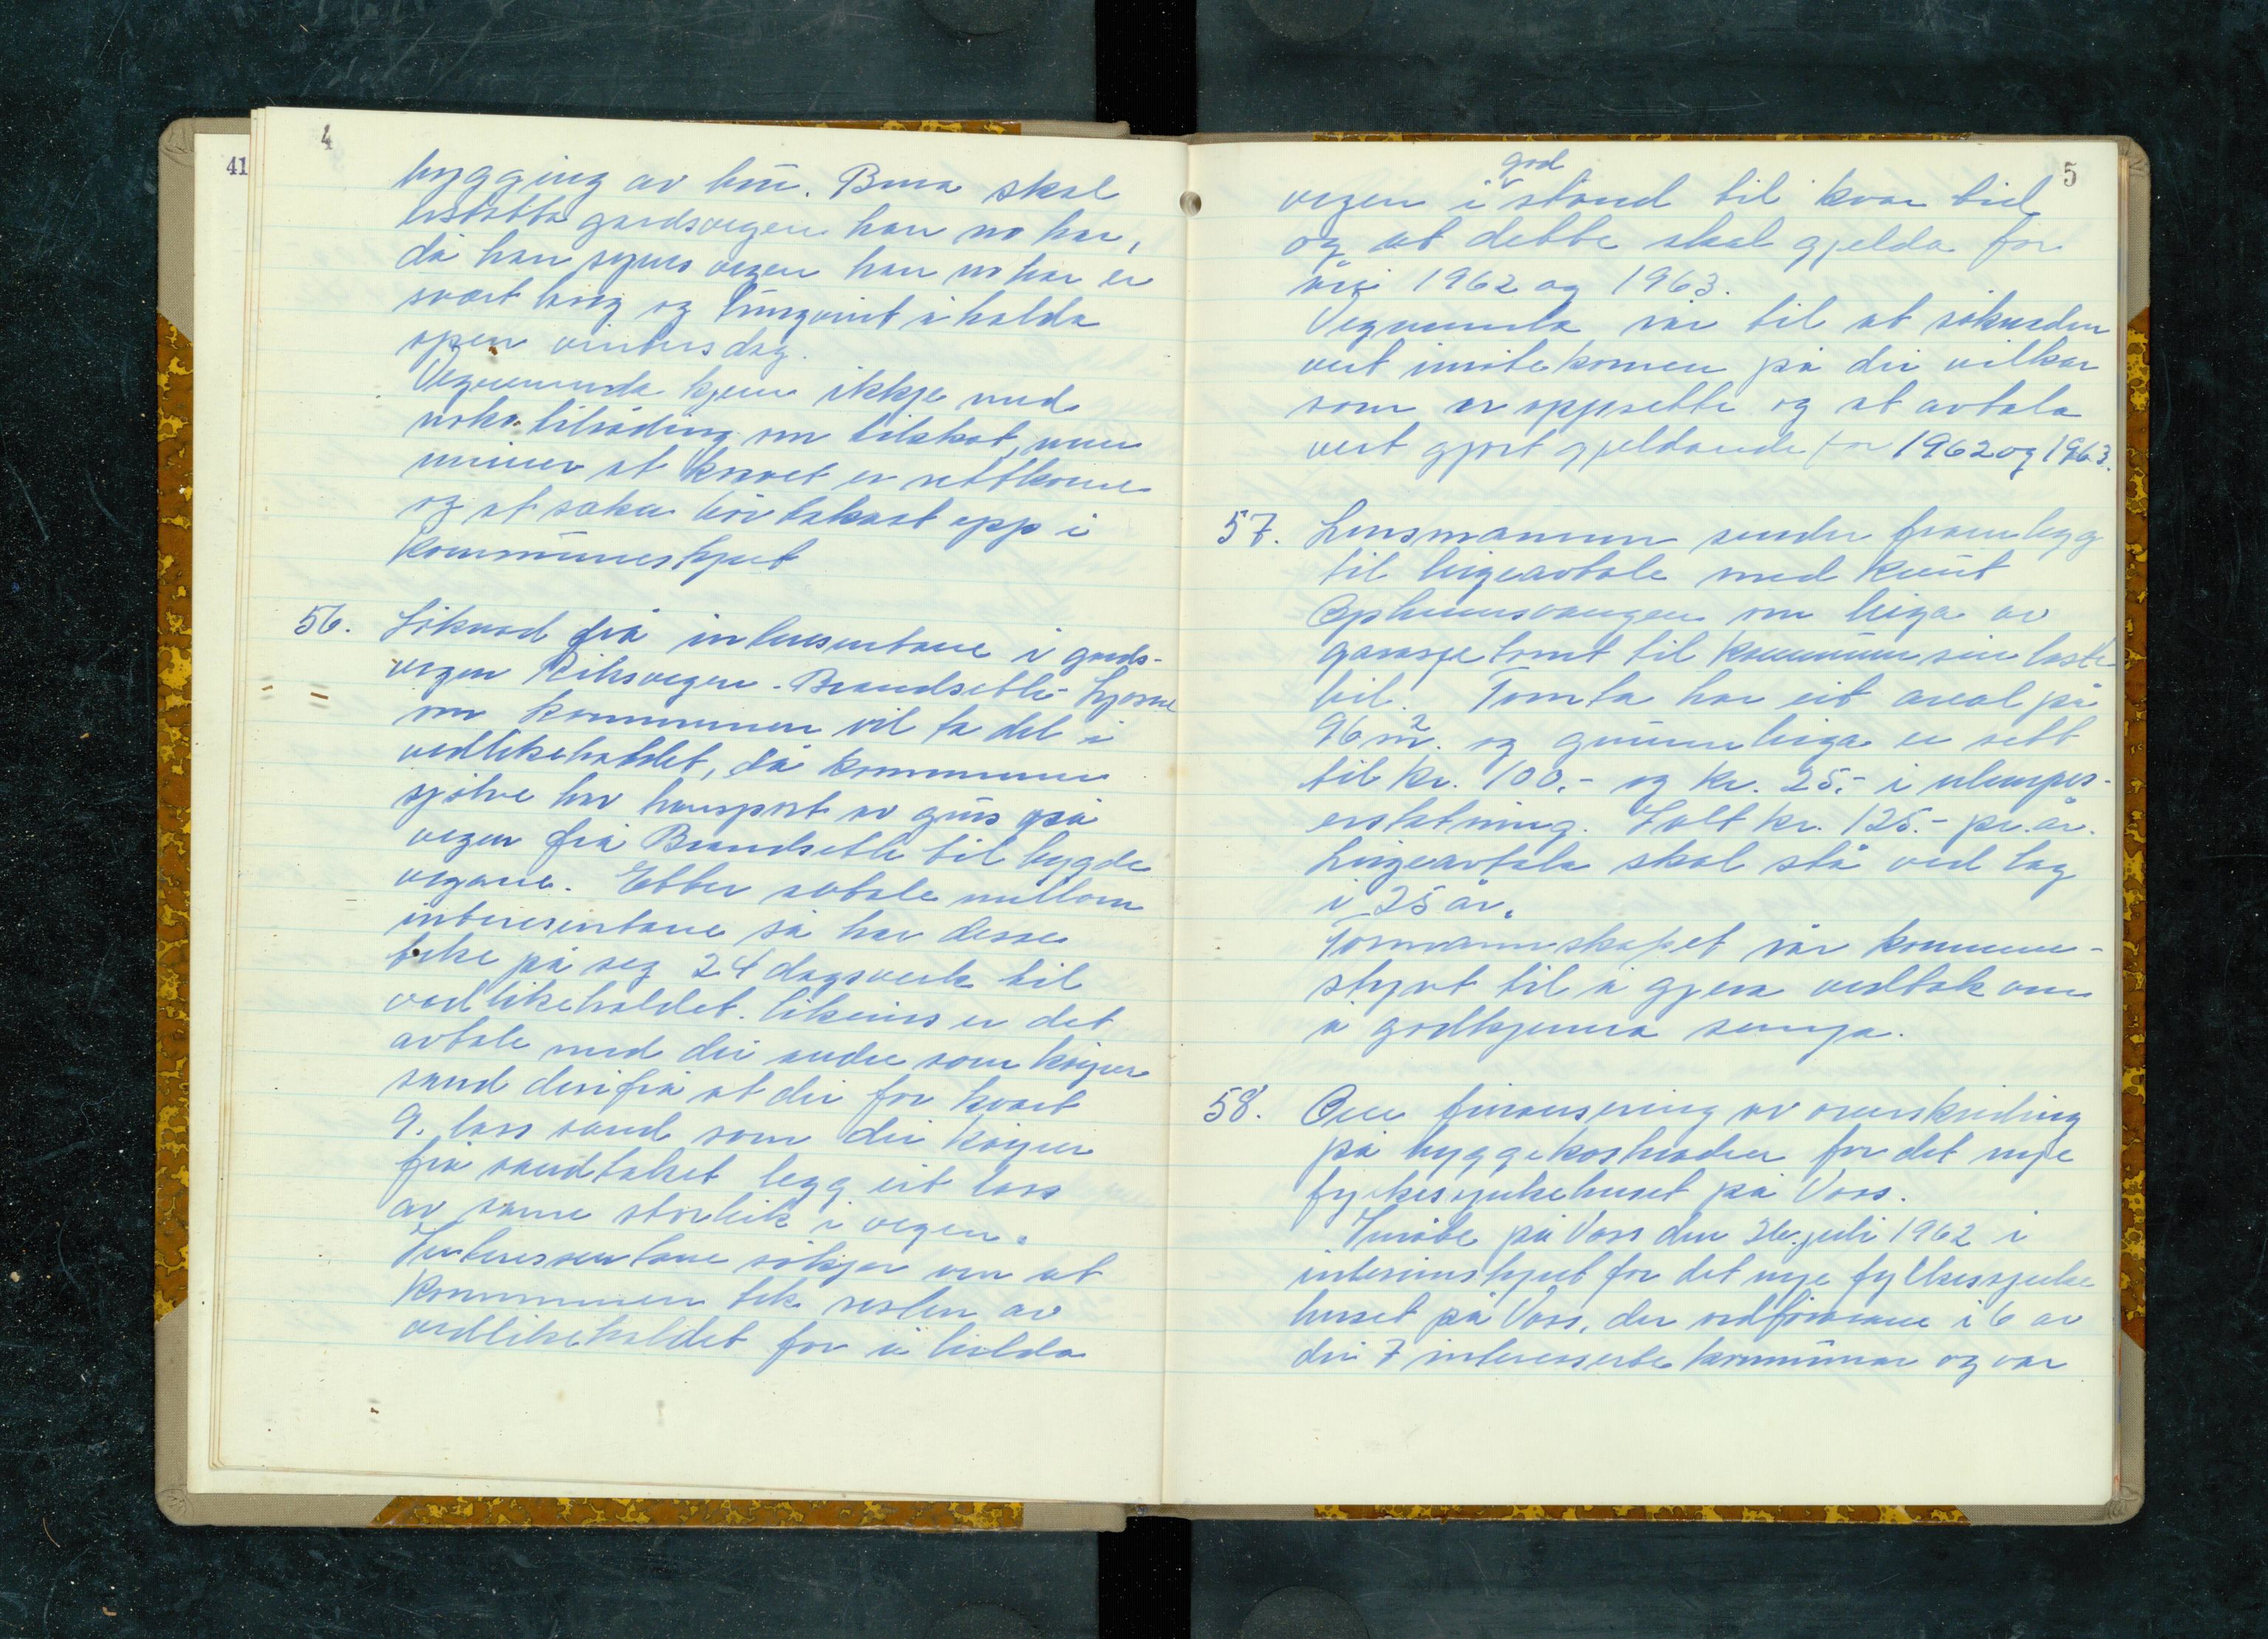 41
4
bygging av bru. Brua skal
erstatta gardsvegen han no har,
då han synes vegen han no har er
svært lang og tungvint å halda
open vintersdag.
Vegnemnda kjem ikkje med
noko tilråding om tilskot, men
meiner at kravet er rettkome
og at saka bör takast opp i
Kommunestyret
56. Söknad frå interesentane i gards-
vegen Riksvegen - Brandsette - Gjerme
om kommunen vil ta del i
vedlikehaldet, då kommunen
sjölve har transport av grus på
vegen frå Brandsette til bygde
vegane. Etter avtale millom
interesentane så har desse
teke på seg 24 dagsverk til
vedlikehaldet. Likeins er det
avtale med dei andre som köyrer
sand derifrå at dei for kvart
9. lass sand som dei köyrer
frå sandtaket legg eit lass
av same storleik i vegen.
Interessentane sökjer om at
Kommunen tek resten av
vedlikehaldet for å halda
5
god
vegen i stand til kvar tid
og at dette skal gjelda for
åri 1962 og 1963.
Vegnemnda rår til at söknaden
vert imötekomen på dei vilkår
som er oppsette og at avtala
vert gjort gjeldande for 1962 og 1963.
57. Lensmannen sender framlegg
til leigeavtale med Knut
Opheimsvangen om leiga av
garasjetomt til kommunen sin laste-
bil. Tomta har eit areal på
96 m². og grunnleiga er sett
til kr. 100.- og kr. 25.- i ulempes-
erstatning. I alt kr. 125.- pr. år.
Leigeavtala skal stå ved lag
i 25 år.
Formannskapet rår kommune-
styret til å gjera vedtak om
å godkjenna semja.
58. Om finansiering av overskriding
på byggekostnaden for det nye
fylkessjukehuset på Voss.
I möte på Voss den 26. juli 1962 i
interimstyret for det nye fylkessjuke
huset på Voss, der ordförarane i 6 av
dei 7 interesserte kommunar og var